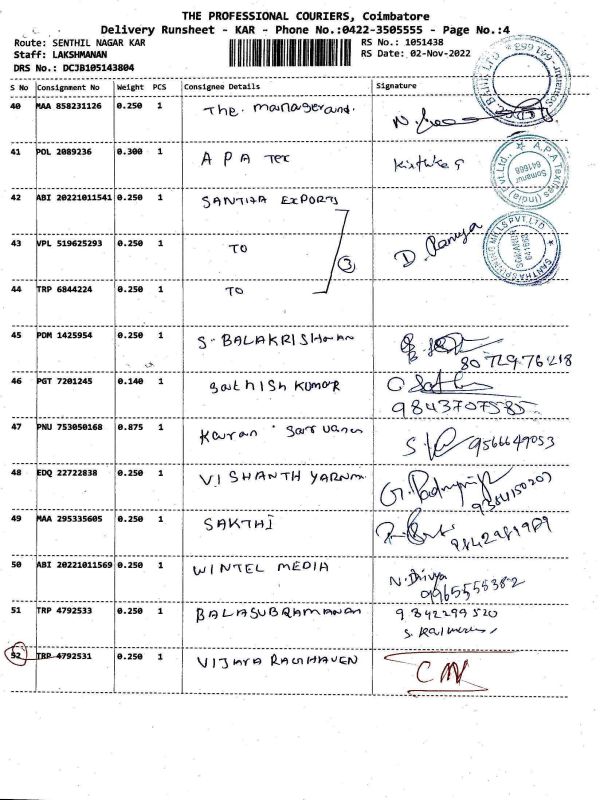 THE PROFESSIONAL COURIERS, Coimbatore
Delivery Runsheet - KAR - Phone No.:0422-3505555 - Page No.:4
Route: SENTHIL NAGAR KAR RS No.: 1051438
Staff: LAKSHMANAN RS Date: 02-Nov-2022
DRS No.: DCJB105143804
S No Consignment No Weight PCS Consignee Details Signature
40 MAA 858231126 0.250 1 The. manager and. N.
41 POL 2089236 0.300 1 A P A Tex
A.P.A Textiles (India) Pvt.Ltd., Somanur 641668
42 ABI 20221011541 0.250 1 SANTHA EXPORTS
43 VPL 519625293 0.250 1 TO 3 D. Ramya
SANTHA SPINNING MILLS PVT.LTD
44 TRP 6844224 0.250 1 TO
45 PDM 1425954 0.250 1 S. BALAKRISHNAN
8072976218
46 PGT 7201245 0.140 1 Sathish Kumar
9843707585
47 PNU 753050168 0.875 1 Karan Sarvanan 9566649053
48 EDQ 22722838 0.250 1 VISHANTH YARNM
9384150203
49 MAA 295335605 0.250 1 SAKTHI
9842981989
50 ABI 20221011569 0.250 1 WINTEL MEDIA N. Divya
9965555382
51 TRP 4792533 0.250 1 BALASUBRAMANAN 9842299520
52 TRP 4792531 0.250 1 VIJAYA RAGHAVEN